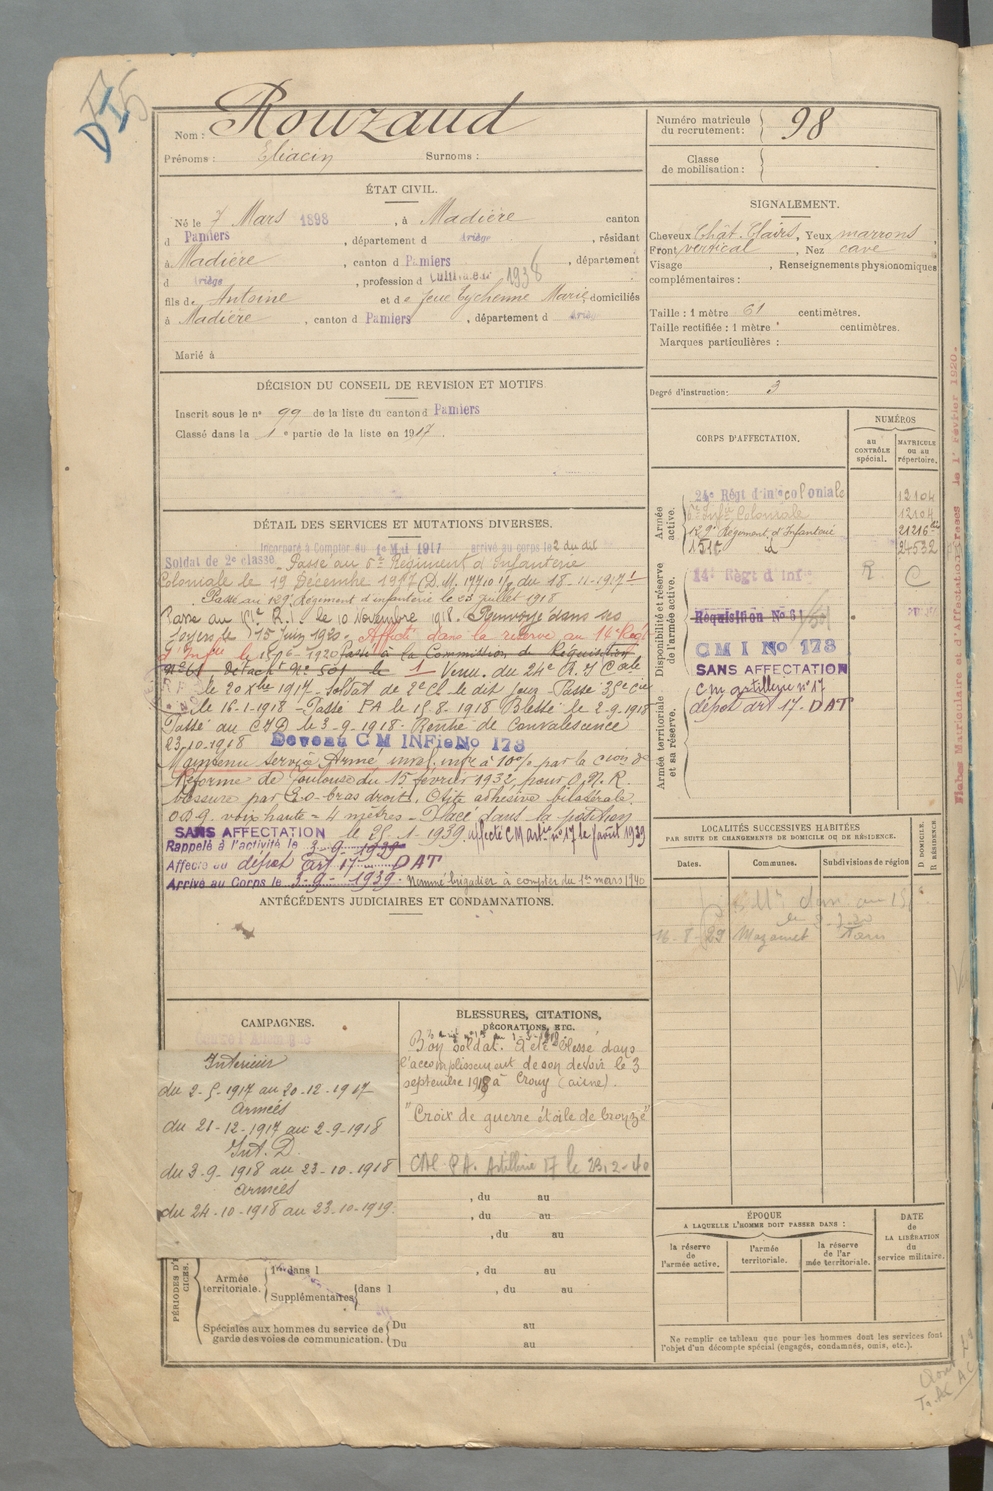 DI5
Nom : Rouzaud
Prénoms : Eliacin Surnoms :
ÉTAT CIVIL.
Né le 7 Mars 1898, à Madière canton
d Pamiers, département d Ariège, résidant
à Madière, canton d Pamiers, département
d Ariège, profession d Cultivateur 1938
fils de Antoine et de feue Eychenne Marie domiciliés
à Madière, canton d Pamiers, département d Ariège
Marié à
DÉCISION DU CONSEIL DE REVISION ET MOTIFS
Inscrit sous le n° 99 de la liste du canton d Pamiers
Classé dans la 1e partie de la liste en 1917.
DÉTAIL DES SERVICES ET MUTATIONS DIVERSES.
Incorporé à Compter du 1er Mai 1917 arrivé au corps le 2 du dit
Soldat de 2e classe Passé au 5e Régiment d'Infanterie
Coloniale le 19 Décembre 1917 (D.M. 17710 1/8 du 18-11-1917)
Passé au 129e Régiment d'infanterie le 23 juillet 1918
Passé au 151e R.I. le 10 Novembre 1918. Renvoyé dans ses
foyers le 15 Juin 1920. Affecté dans la réserve au 14e Régt
d'Infrie le 15-6-1920 Passé à la Commission de Réquisition
N° 61 Détacht N° 501 le 1 Venu du 24e R.I Cale
le 20 Xbre 1917 - Soldat de 2e Cl le dit jour - Passé 35e Cie
le 16-1-1918 - Passé PA le 15-8-1918 Blessé le 2-9-1918
Passé au CID le 3-9-1918. Rentré de Convalescence
23-10-1918 Devenu CM INFie No 173
Maintenu Service Armé inval. infre à 10% par la Cion de
Réforme de Toulouse du 15 février 1932 pour
blessure par E.O. bras droit, Otite adhésive bilatérale.
O.D.G. voix haute = 4 mètres - Placé dans la position
SANS AFFECTATION le 25-1-1939. affecté CM artie n° 17 le 1 août 1939
Rappelé à l'activité le 3-9-1939
Affecté au dépôt art 17 DAT
Arrivé au Corps le 3-9-1939. Nommé brigadier à compter du 1er mars 1940
ANTÉCÉDENTS JUDICIAIRES ET CONDAMNATIONS.
CAMPAGNES.
Contre l'Allemagne
Intérieur
du 2-5-1917 au 20-12-1917
Armées
du 21-12-1917 au 2-9-1918
Int. D.
du 3-9-1918 au 23-10-1918
Armées
du 24-10-1918 au 23-10-1919.
BLESSURES, CITATIONS,
DÉCORATIONS, ETC.
Bon soldat. A été blessé dans
l'accomplissement de son devoir le 3
septembre 1918 à Crouy (aisne).
"Croix de guerre étoile de bronze"
P.A. Artillerie 17 le 23.2-40
, du au
, du au
, du au
PÉRIODES D'EXERCICES.
Armée territoriale.
1re dans l , du au
Supplémentaires dans l , du au
Spéciales aux hommes du service de garde des voies de communication.
Du au
Du au
Numéro matricule du recrutement : 98
Classe de mobilisation :
SIGNALEMENT.
Cheveux Chât. Clairs, Yeux marrons,
Front vertical, Nez cave
Visage , Renseignements physionomiques
complémentaires :
Taille : 1 mètre 61 centimètres.
Taille rectifiée : 1 mètre centimètres.
Marques particulières :
Degré d'instruction : 3
CORPS D'AFFECTATION.
NUMÉROS
au CONTRÔLE spécial.
MATRICULE OU AU répertoire.
Armée active.
24e Régt d'Infie coloniale 12104
5e Infie Coloniale 12104
129e Régiment d'Infanterie 21216 bis
151e d 24532
Disponibilité et réserve de l'armée active.
14e Régt d'Infie R. C
Réquisition No 61/501
CMI No 173
SANS AFFECTATION
CM artillerie n° 17
dépôt art 17. DAT
Armée territoriale et sa réserve.
LOCALITÉS SUCCESSIVES HABITÉES
PAR SUITE DE CHANGEMENTS DE DOMICILE OU DE RÉSIDENCE.
Dates. Communes. Subdivisions de région
D DOMICILE. R RÉSIDENCE.
16-8-29 Mazamet Tarn
ÉPOQUE
A LAQUELLE L'HOMME DOIT PASSER DANS :
la réserve de l'armée active.
l'armée territoriale.
la réserve de l'armée territoriale.
DATE de LA LIBÉRATION du service militaire.
Ne remplir ce tableau que pour les hommes dont les services font
l'objet d'un décompte spécial (engagés, condamnés, omis, etc.).
Fiches Matriculaire et d'Affectation dressées le 1er Février 1920.